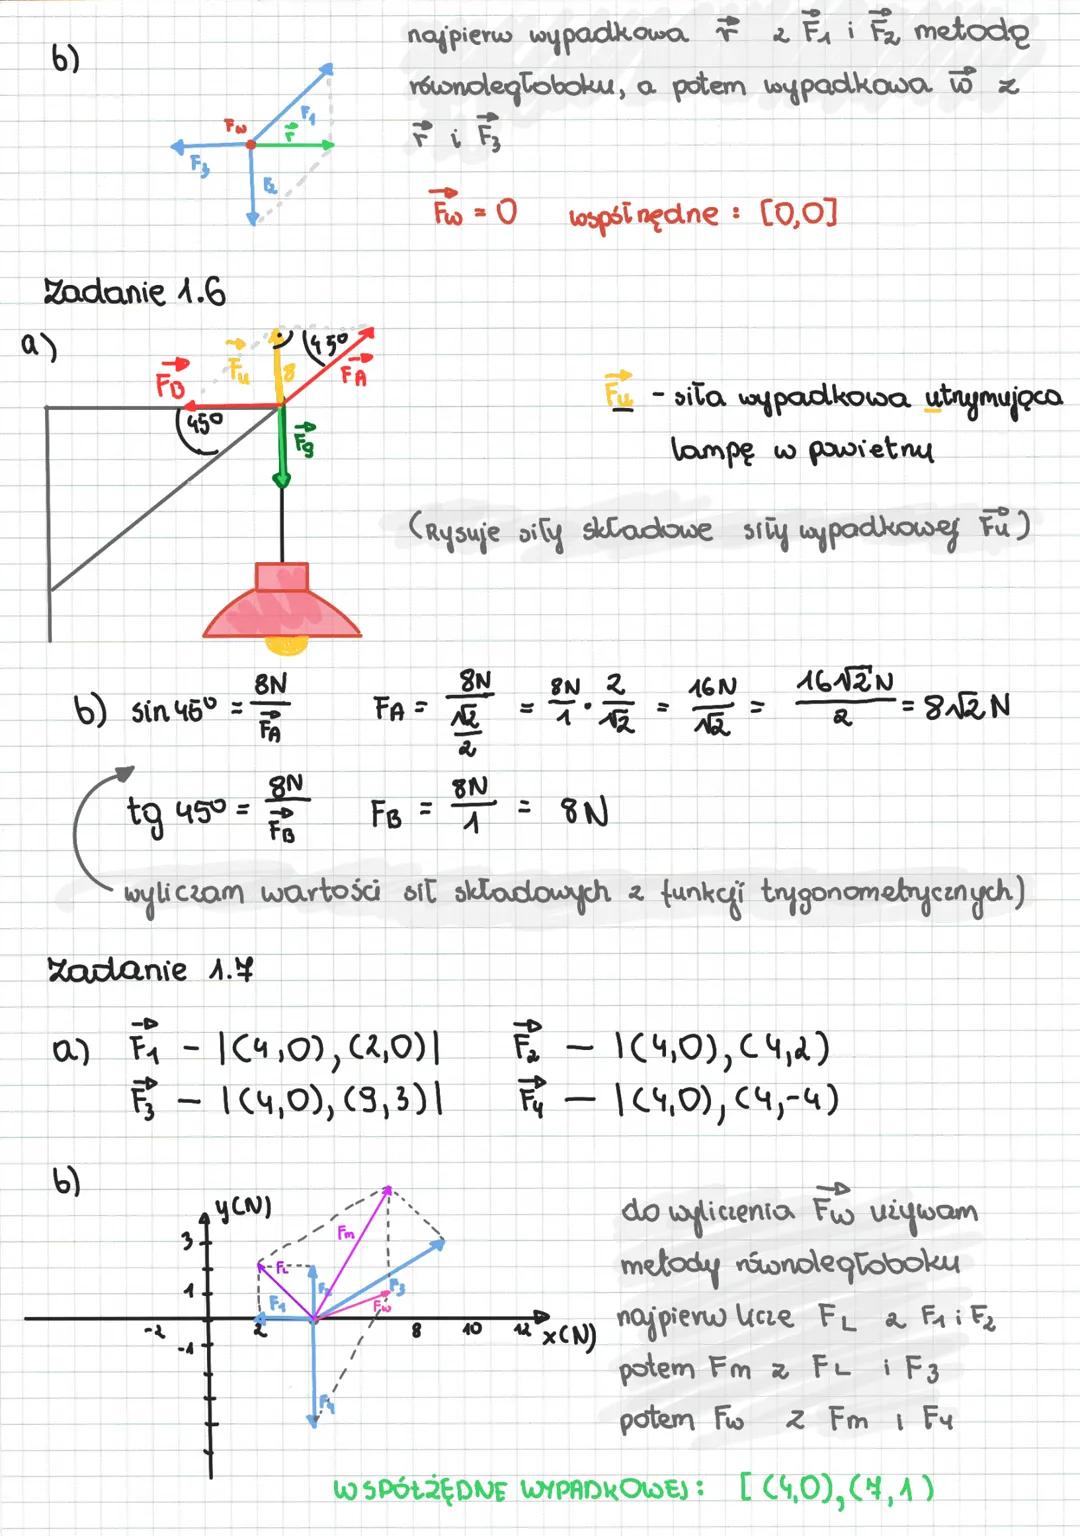 b)
najpierw wypadkowa r z F₁ i F₂ metodą
równoległoboku, a potem wypadkowa w z
r i F₃
F₁
Fw
r
F₃
F₂
Fw = 0 współrzędne : [0,0]
Zadanie 1.6
a)
45°
Fu
8
FA
FB
45°
Fg
Fu - siła wypadkowa utrzymująca
lampę w powietrzu
(Rysuje siły składowe siły wypadkowej Fu)
b) sin 45° = 8N/FA FA = 8N/(√2/2) = 8N/1 · 2/√2 = 16N/√2 = 16√2N/2 = 8√2 N
tg 45° = 8N/FB FB = 8N/1 = 8N
wyliczam wartości sił składowych z funkcji trygonometrycznych)
Zadanie 1.7
a) F₁ - |(4,0),(2,0)| F₂ - |(4,0),(4,2)
F₃ - |(4,0),(9,3)| F₄ - |(4,0),(4,-4)
b)
y(N)
3
1
-1
-2 2 8 10 12 x(N)
FL
F₁
F₂
Fm
F₃
Fw
F₄
do wyliczenia Fw używam
metody równoległoboku
najpierw licze FL z F₁ i F₂
potem Fm z FL i F₃
potem Fw z Fm i F₄
WSPÓŁŻĘDNE WYPADKOWEJ : [(4,0),(7,1)